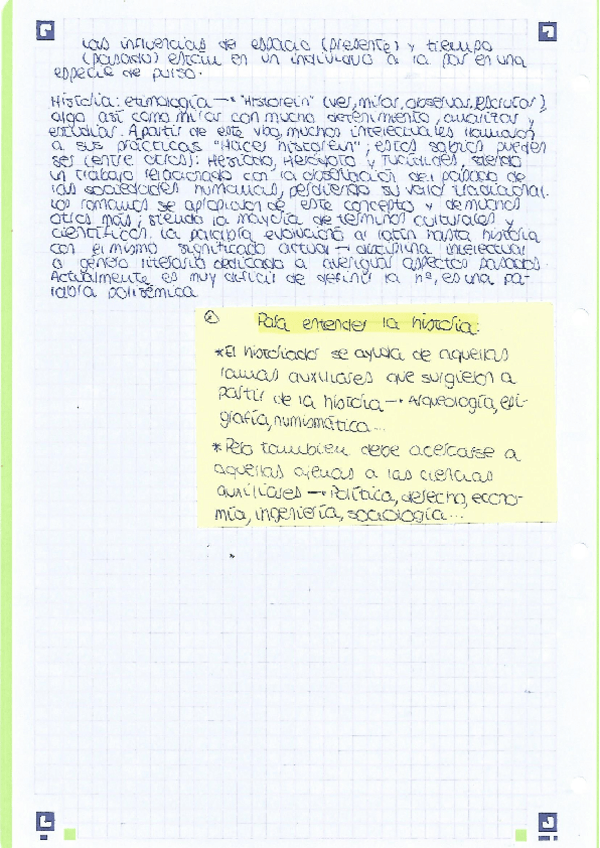 Las influencias de espacio (presente) y tiempo
(pasado) están en un individuo a la par en una
especie de pulso.
Historia: etimología → "Historein" (ver, mirar, observar, escrutar),
algo así como mirar con mucho detenimiento, analizar y
estudiar. A partir de este vbo, muchos intelectuales llamaron
a sus prácticas "Hacer historein"; estos sabios pueden
ser (entre otros): Hesíodo, Heródoto y Tucídides, siendo
un trabajo relacionado con la observación del pasado de
las sociedades humanas, perdiendo su valor tradicional.
Los romanos se apropian de este concepto y de muchos
otros más; siendo la mayoría de términos culturales y
científicos. La palabra evolucionó al latín hasta historia
con el mismo significado actual → disciplina intelectual
o género literario dedicado a averiguar aspectos pasados.
Actualmente es muy difícil de definir la hª, es una pa-
labra polisémica
* Para entender la historia:
* El historiador se ayuda de aquellas
ramas auxiliares que surgieron a
partir de la historia → Arqueología, epi-
grafía, numismática...
* Pero también debe acercarse a
aquellas ajenas a las ciencias
auxiliares → Política, derecho, econo-
mía, ingeniería, sociología...